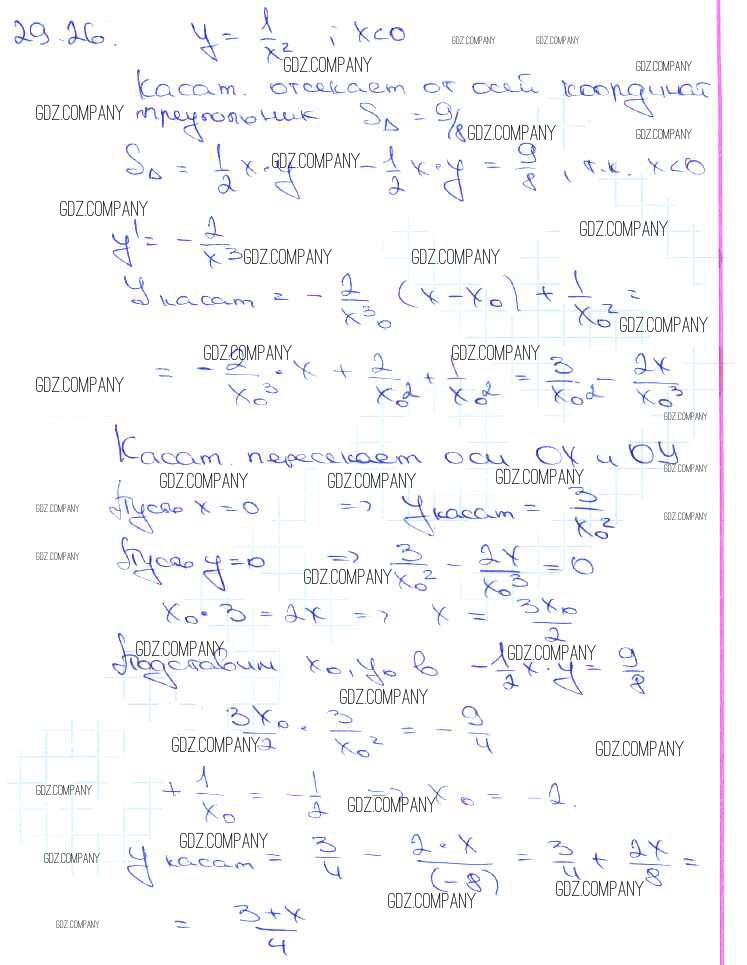 29.26. y = 1/x² ; x<0
GDZ.COMPANY GDZ.COMPANY
GDZ.COMPANY GDZ.COMPANY
Касат. отсекает от осей координат
GDZ.COMPANY треугольник S△ = 9/8 GDZ.COMPANY GDZ.COMPANY
S△ = 1/2 x·y GDZ.COMPANY - 1/2 x·y = 9/8, т.к. x<0
GDZ.COMPANY
GDZ.COMPANY
y' = - 2/x³ GDZ.COMPANY GDZ.COMPANY
y касат = - 2/x³₀ (x-x₀) + 1/x₀² =
GDZ.COMPANY
GDZ.COMPANY GDZ.COMPANY
GDZ.COMPANY = - 2/x₀³ · x + 2/x₀² + 1/x₀² = 3/x₀² - 2x/x₀³
GDZ.COMPANY
Касат. пересекает оси OX и OY
GDZ.COMPANY
GDZ.COMPANY GDZ.COMPANY GDZ.COMPANY
GDZ.COMPANY Пусть x = 0 => y касат = 3/x₀² GDZ.COMPANY
GDZ.COMPANY Пусть y=0 => 3/x₀² - 2x/x₀³ = 0
GDZ.COMPANY
x₀·3 = 2x => x = 3x₀/2
GDZ.COMPANY GDZ.COMPANY
Подставим x₀, y₀ в - 1/2 x·y = 9/8
GDZ.COMPANY
3x₀/2 · 3/x₀² = - 9/4
GDZ.COMPANY GDZ.COMPANY
GDZ.COMPANY + 1/x₀ = - 1/2 => x₀ = -2.
GDZ.COMPANY
GDZ.COMPANY
GDZ.COMPANY y касат = 3/4 - 2·x/(-8) = 3/4 + 2x/8 =
GDZ.COMPANY GDZ.COMPANY
GDZ.COMPANY = 3+x/4